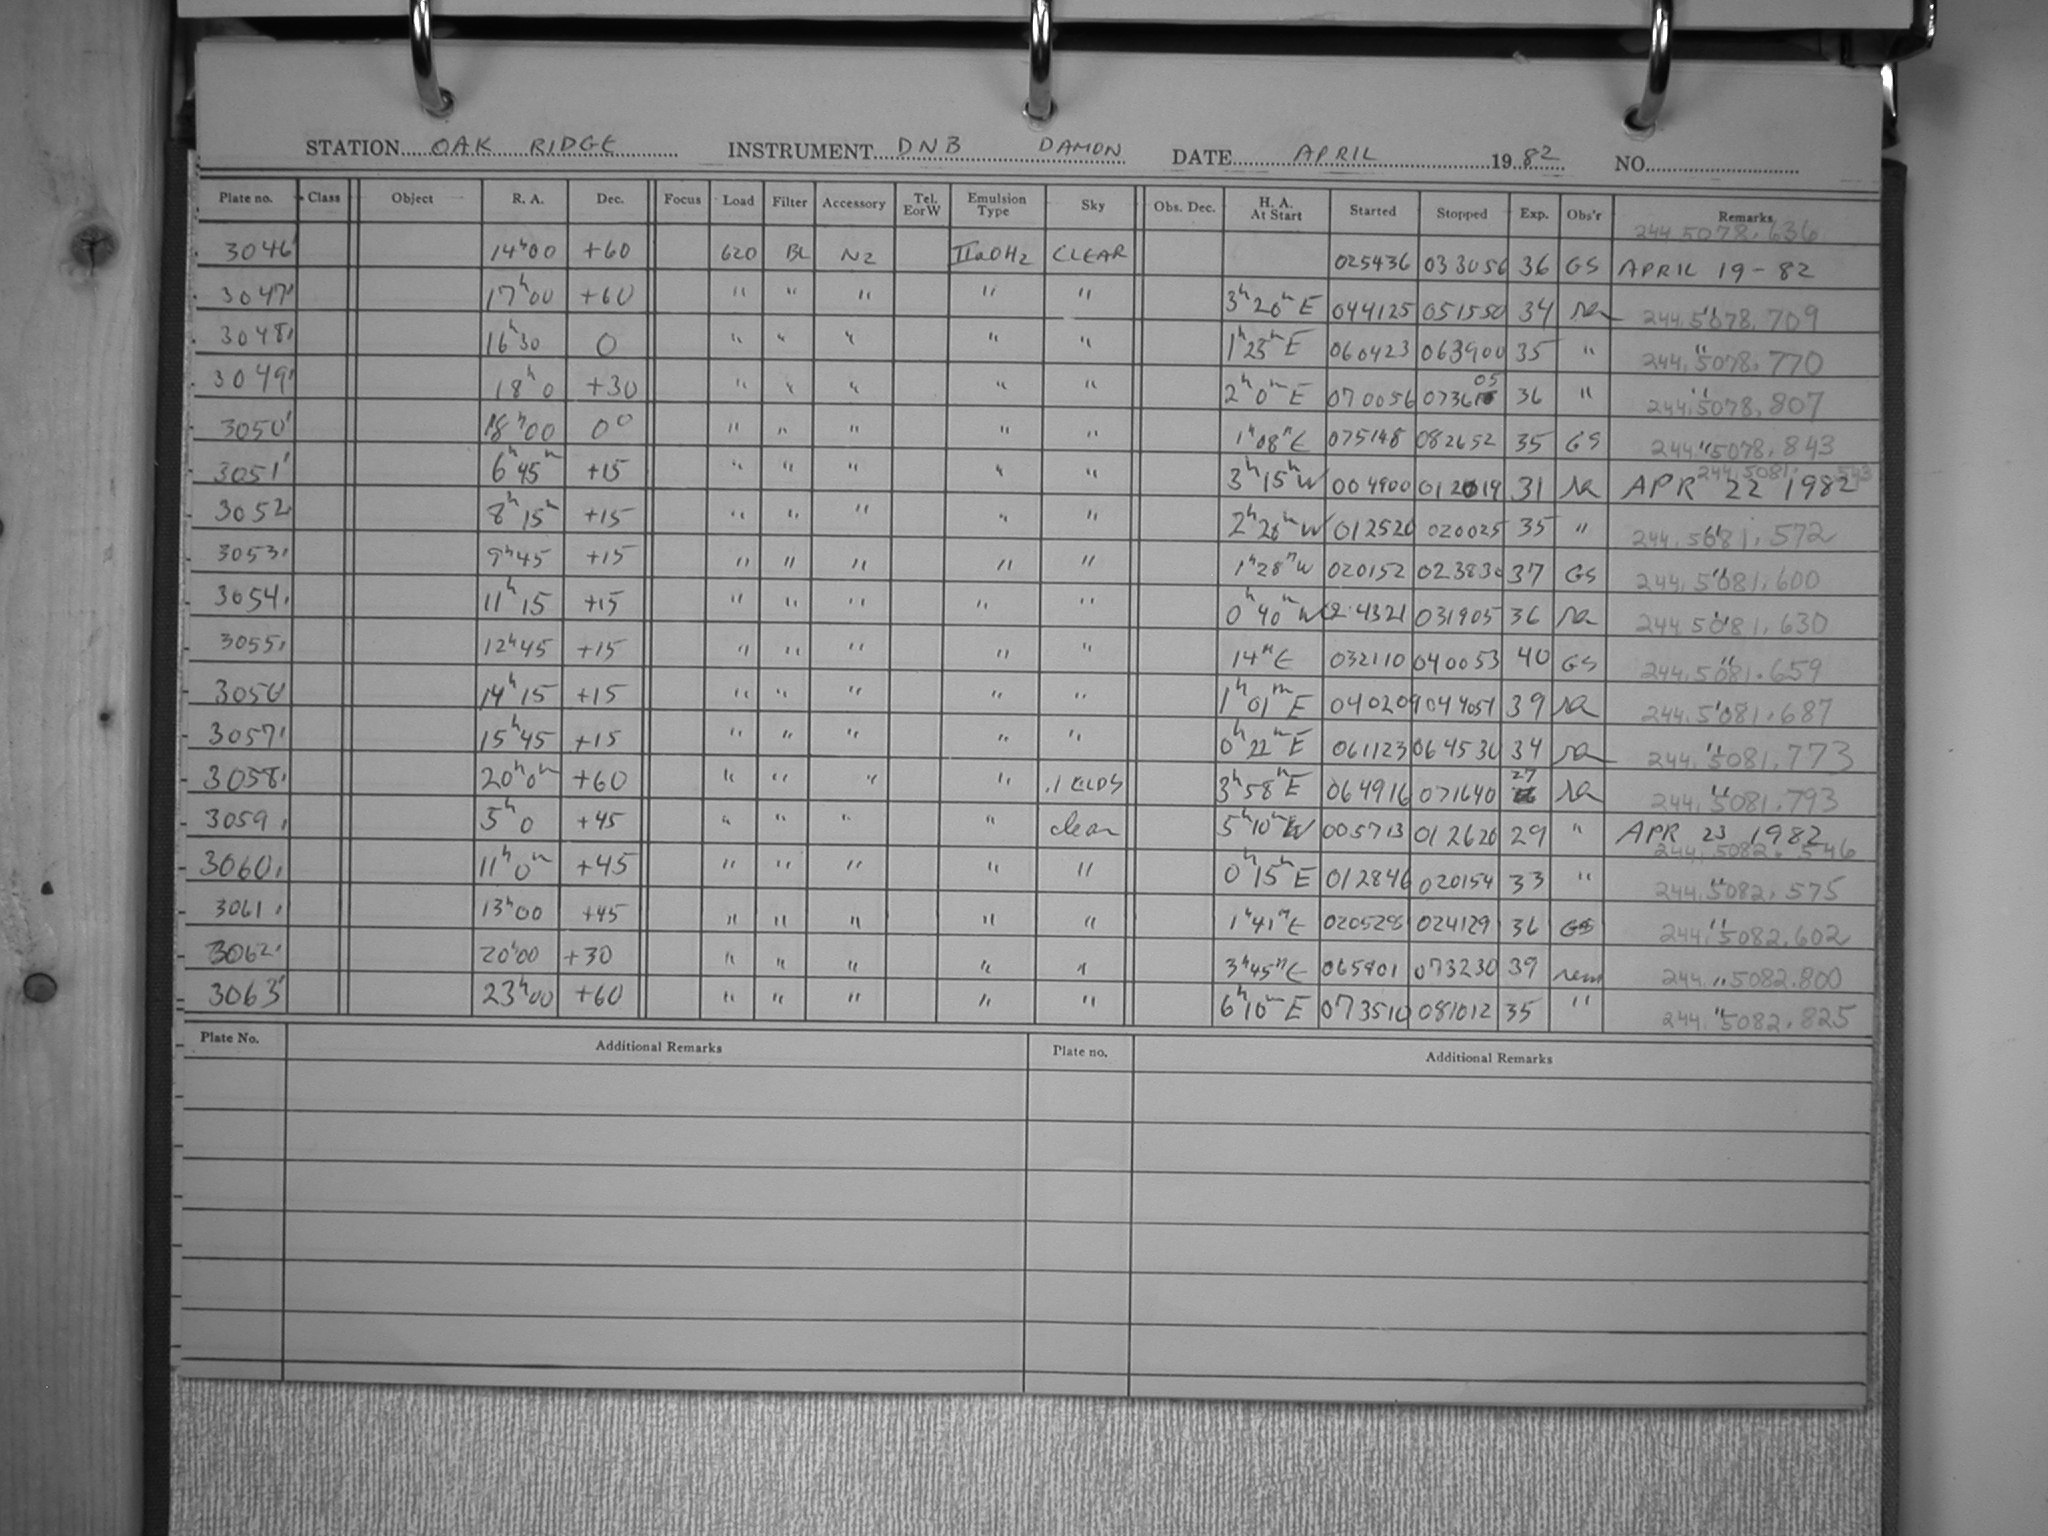 STATION OAK RIDGE INSTRUMENT DNB DAMON DATE APRIL 1982 NO.
Plate no. Class Object R. A. Dec. Focus Load Filter Accessory Tel. EorW Emulsion Type Sky Obs. Dec. H. A. At Start Started Stopped Exp. Obs'r Remarks
244.5078.636
3046 14h00 +60 620 BL N2 IIaOH2 CLEAR 025436 033056 36 GS APRIL 19-82
3047 17h00 +60 " " " " " 3h20mE 044125 051550 34 " 244.5078.709
3048 16h30 0 " " " " " 1h25mE 060423 063900 35 " " 244.5078.770
3049 18h0 +30 " " " " " 2h0mE 070056 073605 36 " " 244.5078.807
3050 18h00 0° " " " " " 1h08mE 075148 082652 35 GS " 244.5078.843
3051 6h45m +15 " " " " " 3h15mW 004900 012019 31 APR 22 1982 244.5081.543
3052 8h15m +15 " " " " " 2h20mW 012520 020025 35 " " 244.5081.572
3053 9h45 +15 " " " " " 1h28mW 020152 023830 37 GS " 244.5081.600
3054 11h15 +15 " " " " " 0h40mW 024321 031905 36 " 244.5081.630
3055 12h45 +15 " " " " " 14mE 032110 040053 40 GS " 244.5081.659
3056 14h15 +15 " " " " " 1h01mE 040209 044054 39 " 244.5081.687
3057 15h45 +15 " " " " " 0h22mE 061123 064530 34 " 244.5081.773
3058 20h0m +60 " " " " .1 CLDS 3h58mE 064916 071640 27 " 244.5081.793
3059 5h0 +45 " " " " clear 5h10mW 005713 012620 29 " APR 23 1982
244.5082.546
3060 11h0m +45 " " " " " 0h15mE 012846 020154 33 " " 244.5082.575
3061 13h00 +45 " " " " " 1h41mE 020528 024129 36 GS " 244.5082.602
3062 20h00 +30 " " " " " 3h45mE 065801 073230 39 " 244.5082.800
3063 23h00 +60 " " " " " 6h10mE 073510 081012 35 " " 244.5082.825
Plate No. Additional Remarks Plate no. Additional Remarks